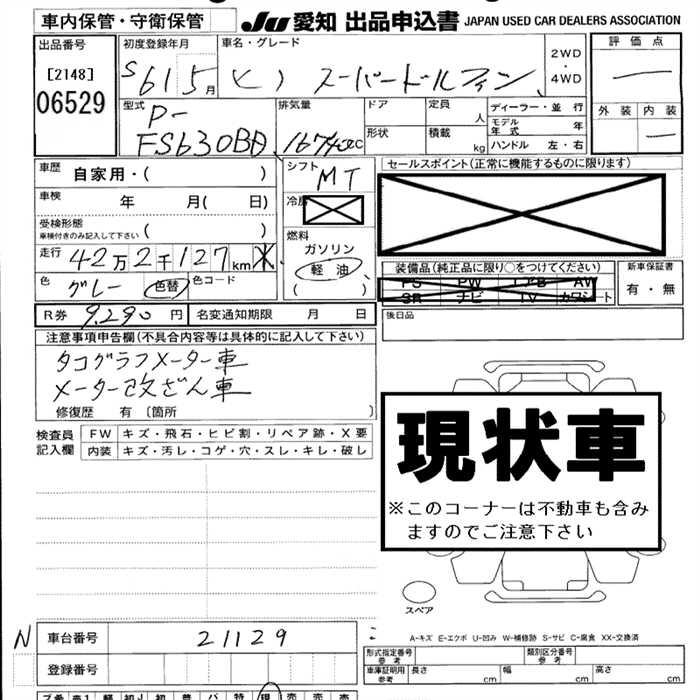 車内保管・守衛保管
JU 愛知 出品申込書 JAPAN USED CAR DEALERS ASSOCIATION
出品番号
[2148]
06529
初度登録年月
S61 5月
車名・グレード
ヒノ スーパードルフィン
2WD
・
4WD
評価点
外装 内装
型式
P-
FS630BD
排気量
16740cc
ドア
定員
人
形状
積載
kg
ディーラー・並行
モデル年式 年
ハンドル 左・右
車歴
自家用・( )
車検
年 月( 日)
受検形態
車検付きのみ記入して下さい
( )
走行
42万2千127km
色
グレー
色替
色コード
シフト
MT
燃料
ガソリン
軽油
( )
セールスポイント(正常に機能するものに限ります)
装備品(純正品に限り○をつけてください)
PS PW エアB AW
SR ナビ TV カワシート
新車保証書
有・無
後日品
R券 9,290円
名変通知期限 月 日
注意事項申告欄(不具合内容等は具体的に記入して下さい)
タコグラフメーター車
メーター改ざん車
修復歴 有 〔箇所 〕
検査員
記入欄
FW キズ・飛石・ヒビ割・リペア跡・X要
内装 キズ・汚レ・コゲ・穴・スレ・キレ・破レ
現状車
※このコーナーは不動車も含み
ますのでご注意下さい
スペア
A-キズ E-エクボ U-凹み W-補修跡 S-サビ C-腐食 XX-交換済
N 車台番号 21129
登録番号
形式指定番号
参考
類別区分番号
参考
車庫証明用
参考
長さ cm 幅 cm 高さ cm